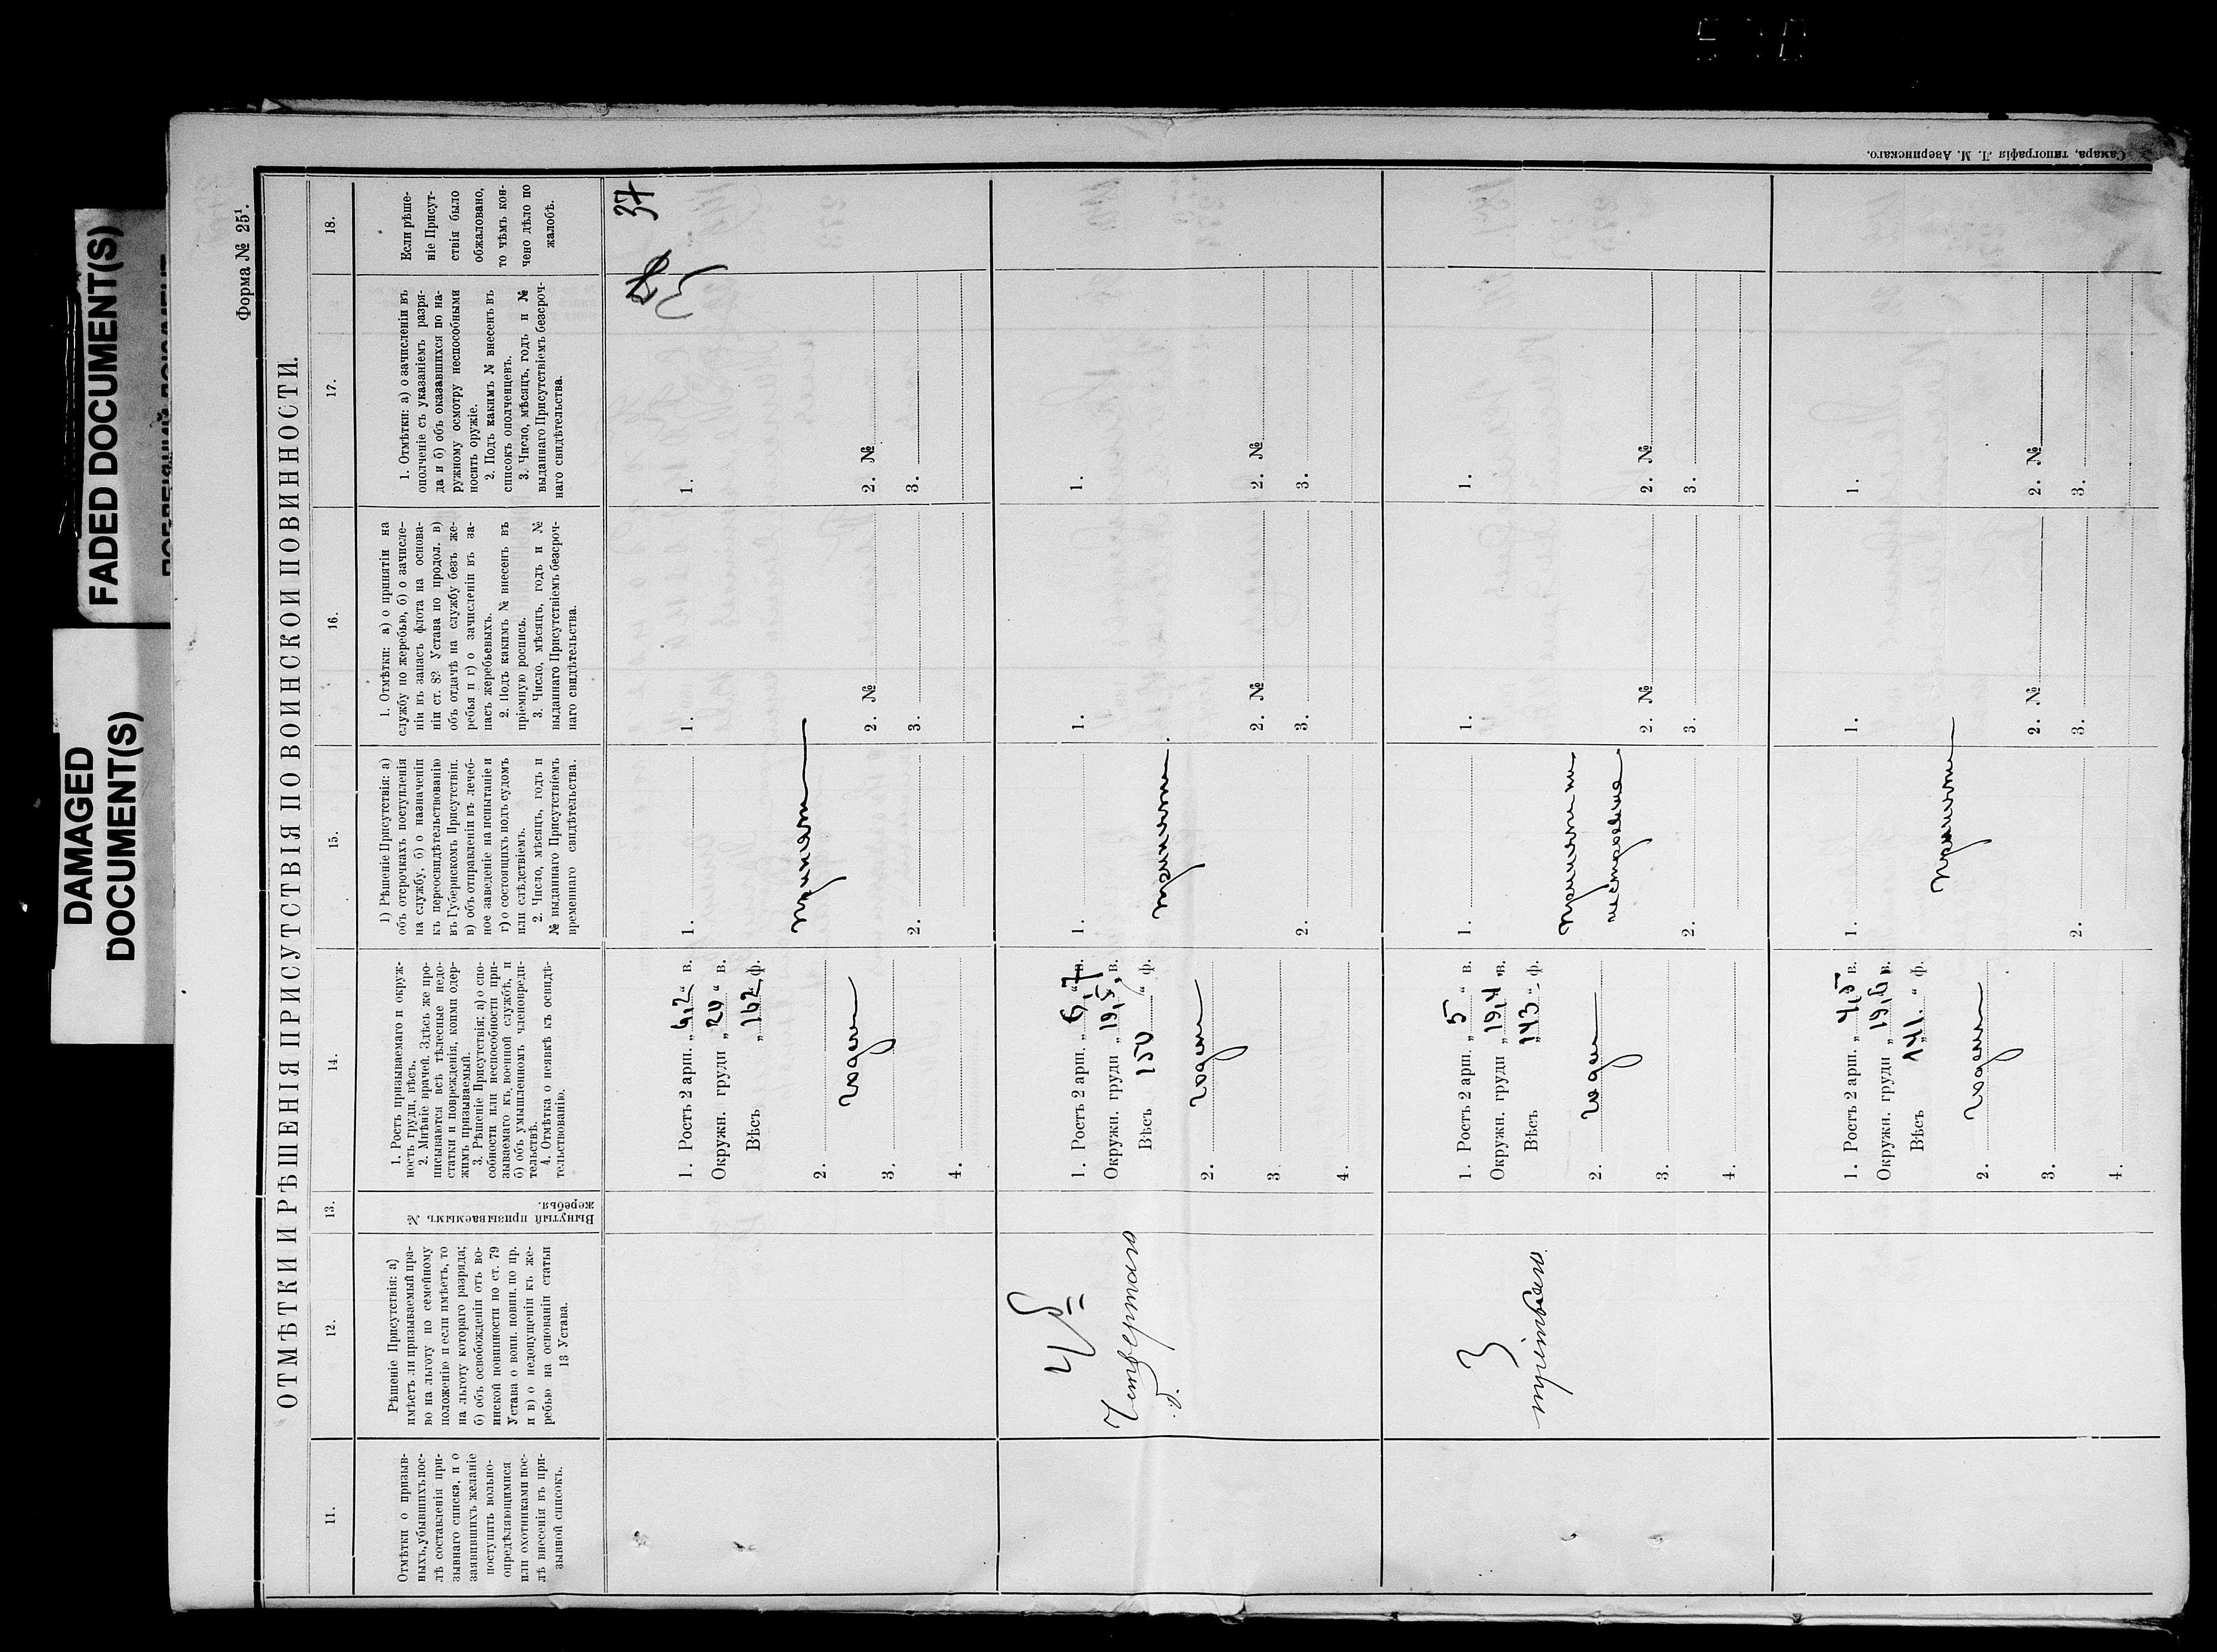 FADED DOCUMENT(S)
DAMAGED
DOCUMENT(S)
Форма № 25¹.
ОТМѢТКИ И РѢШЕНІЯ ПРИСУТСТВІЯ ПО ВОИНСКОЙ ПОВИННОСТИ.
11.
12.
13.
14.
15.
16.
17.
18.
Отмѣтки о призыв-
ныхъ, убывшихъ пос-
лѣ составленія при-
зывнаго списка, и о
заявившихъ желаніе
поступить вольно-
опредѣляющимися
или охотниками пос-
лѣ внесенія въ при-
зывной списокъ.
Рѣшеніе Присутствія: а)
имѣетъ ли призываемый пра-
во на льготу по семейному
положенію и если имѣетъ, то
на льготу котораго разряда;
б) объ освобожденіи отъ во-
инской повинности по ст. 79
Устава о воин. повин. по пр.
и в) о недопущеніи къ же-
ребью на основаніи статьи
13 Устава.
Вынутый призываемымъ №
жеребья.
1. Ростъ призываемаго и окруж-
ность груди, вѣсъ.
2. Мнѣніе врачей. Здѣсь же про-
писываются всѣ тѣлесные недо-
статки и поврежденія, коими одер-
жимъ призываемый.
3. Рѣшеніе Присутствія: а) о спо-
собности или неспособности при-
зываемаго къ военной службѣ, и
б) объ умышленномъ членовреди-
тельствѣ.
4. Отмѣтка о неявкѣ къ освидѣ-
тельствованію.
1) Рѣшеніе Присутствія: а)
объ отсрочкахъ поступленія
на службу, б) о назначеніи
къ переосвидѣтельствованію
въ Губернскомъ Присутствіи.
в) объ отправленіи въ лечеб-
ное заведеніе на испытаніе и
г) о состоящихъ подъ судомъ
или слѣдствіемъ.
2. Число, мѣсяцъ, годъ и
№ выданнаго Присутствіемъ
временнаго свидѣтельства.
1. Отмѣтки: а) о принятіи на
службу по жеребью, б) о зачисле-
ніи въ запасъ флота на основа-
ніи ст. 82 Устава по продол. в)
объ отдачѣ на службу безъ же-
ребья и г) о зачисленіи въ за-
пасъ жеребьевыхъ.
2. Подъ какимъ № внесенъ въ
пріемную роспись.
3. Число, мѣсяцъ, годъ и №
выданнаго Присутствіемъ безсроч-
наго свидѣтельства.
1. Отмѣтки: а) о зачисленіи въ
ополченіе съ указаніемъ разря-
да и б) объ оказавшихся по на-
ружному осмотру неспособными
носить оружіе.
2. Подъ какимъ № внесенъ въ
списокъ ополченцевъ.
3. Число, мѣсяцъ, годъ и №
выданнаго Присутствіемъ безсроч-
наго свидѣтельства.
Если рѣше-
ніе Присут-
ствія было
обжаловано,
то чѣмъ кон-
чено дѣло по
жалобѣ.
37
1. Ростъ 2 арш. „4,2“ в.
Окружн. груди „20“ в.
Вѣсъ „162“ ф.
2. годен
3.
4.
1.
принят
2.
1.
2. №
3.
1.
2. №
3.
4
Четвертаго
1. Ростъ 2 арш. „6,7“ в.
Окружн. груди „19,5“ в.
Вѣсъ 150 “ ф.
2. годен
3
4.
1.
принят
2.
1.
2. №
3.
1.
2. №
3.
3
третьяго
1. Ростъ 2 арш. „5“ в.
Окружн. груди „19,4“ в.
Вѣсъ „143“ ф.
2. годен
3.
4.
1.
2.
1.
2. №
3.
1.
2. №
3.
1. Ростъ 2 арш. „4,5“ в.
Окружн. груди „19,6“ в.
Вѣсъ „141.“ ф.
2. годен
3.
4.
1.
принят
2.
1.
2. №
3.
1.
2. №
3.
Самара, типографія Л. М. Азеринскаго.